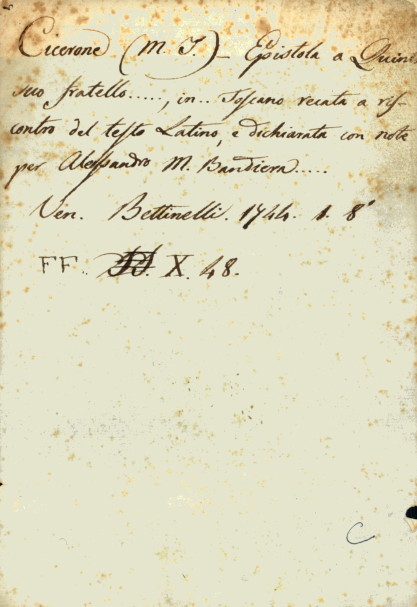 Cicerone (M. T.) _ Epistola a Quint
suo fratello....., in.. Toscano recata a ris-
contro del testo Latino, e dichiarata con note
per Alessandro M. Bandiera.....
Ven. Bettinelli. 1744. 1. 8°
FF. X. 48.
C